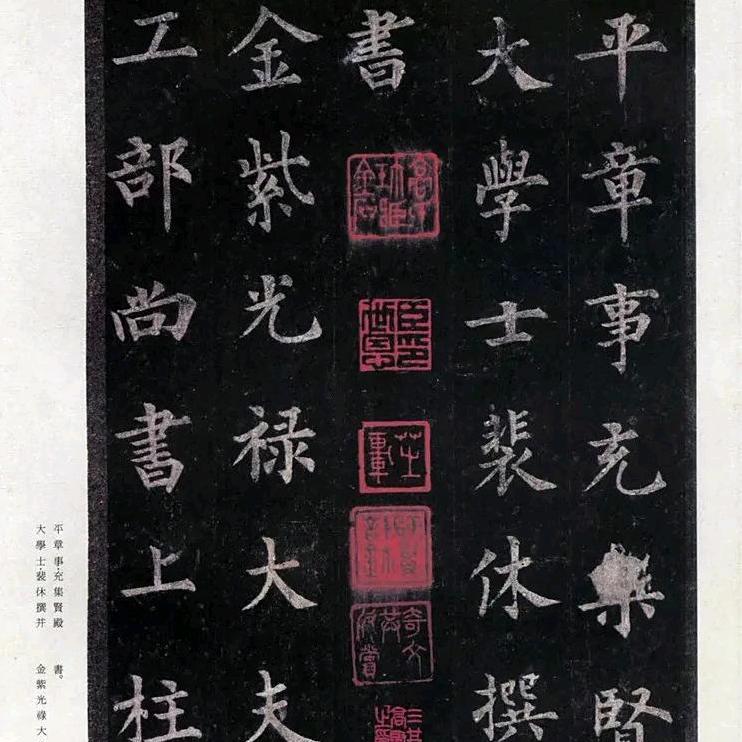 平章事充集賢
大學士裴休撰
書
金紫光祿大夫
工部尚書上柱
平章事·充集賢殿
大學士·裴休撰并
書。
金紫光祿大